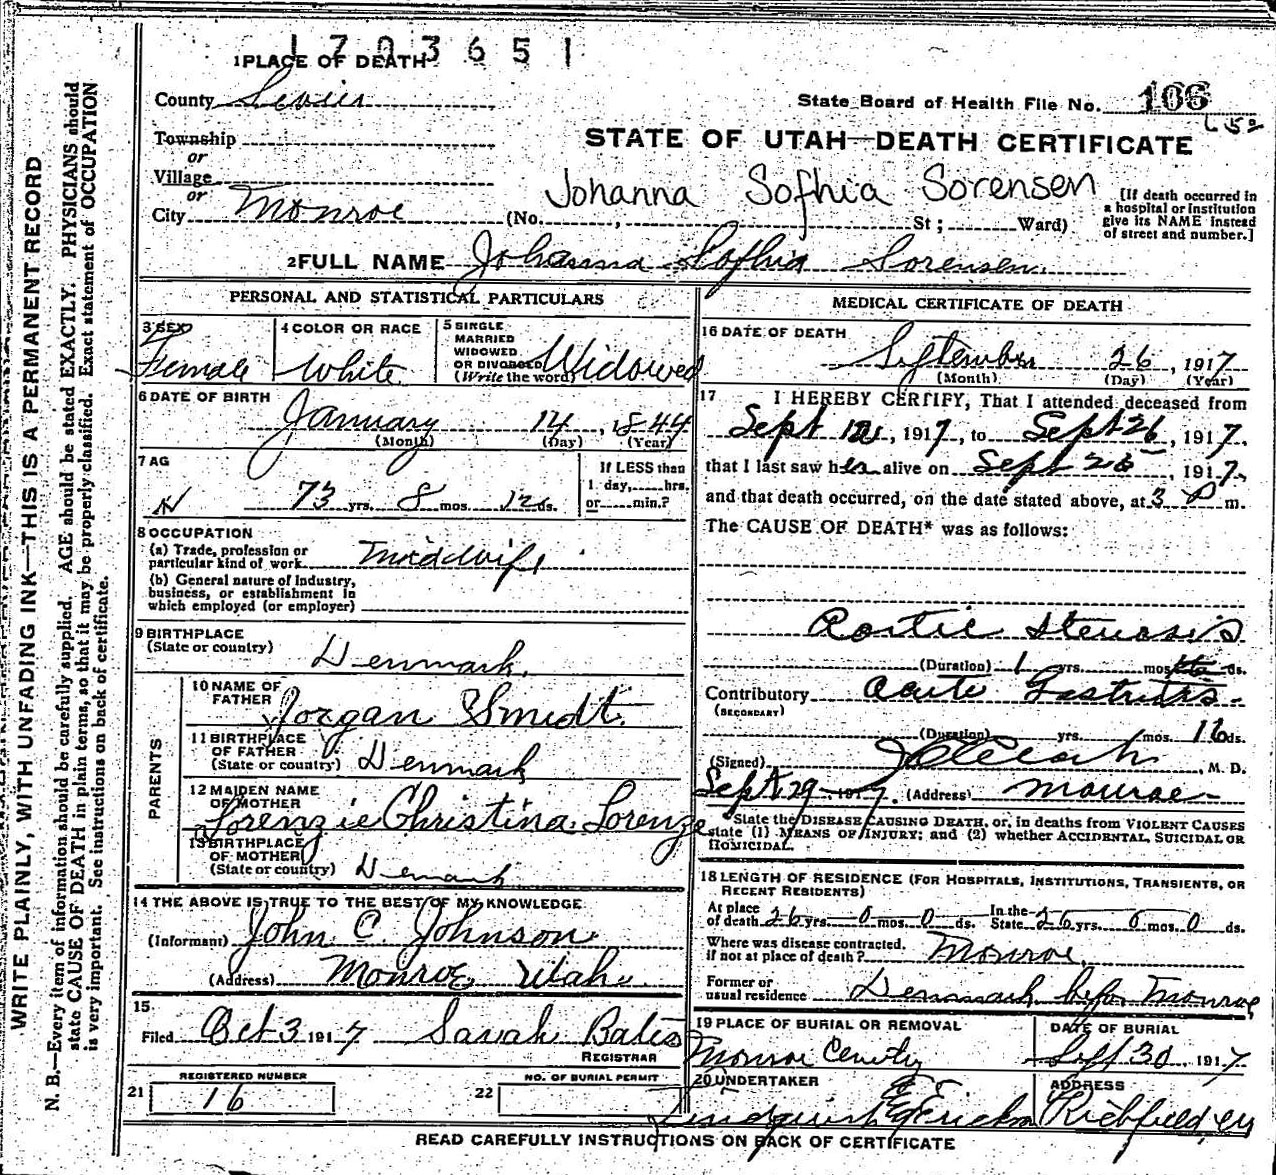 1703651
1 PLACE OF DEATH
County Sevier
State Board of Health File No. 106
Township
or
STATE OF UTAH—DEATH CERTIFICATE
Village
or
Johanna Sofhia Sorensen
City Monroe (No. , St ; Ward)
[If death occurred in
a hospital or institution
give its NAME instead
of street and number.]
2 FULL NAME Johanna Sofhia Sorensen
PERSONAL AND STATISTICAL PARTICULARS
3 SEX
Female
4 COLOR OR RACE
White
5 SINGLE
MARRIED
WIDOWED
OR DIVORCED
(Write the word)
Widowed
6 DATE OF BIRTH
January 14, 1844
(Month) (Day) (Year)
7 AG
73 yrs. 8 mos. 12 ds.
If LESS than
1 day, hrs.
or min.?
8 OCCUPATION
(a) Trade, profession or
particular kind of work Midwife
(b) General nature of Industry,
business, or establishment in
which employed (or employer)
9 BIRTHPLACE
(State or country) Denmark.
PARENTS
10 NAME OF
FATHER Jorgan Smidt.
11 BIRTHPLACE
OF FATHER
(State or country) Denmark
12 MAIDEN NAME
OF MOTHER
Lorenzie Christina Lorenze
13 BIRTHPLACE
OF MOTHER
(State or country) Denmark
14 THE ABOVE IS TRUE TO THE BEST OF MY KNOWLEDGE
(Informant) John C. Johnson.
(Address) Monroe Utah.
15
Filed Oct 3 1917 Sarah Bates
REGISTRAR
REGISTERED NUMBER
21 16
NO. OF BURIAL PERMIT
22
MEDICAL CERTIFICATE OF DEATH
16 DATE OF DEATH
September 26, 1917
(Month) (Day) (Year)
17 I HEREBY CERTIFY, That I attended deceased from
Sept , 1917, to Sept 26, 1917.
that I last saw her alive on Sept 26, 1917,
and that death occurred, on the date stated above, at 3 P m.
The CAUSE OF DEATH* was as follows:
Aortic Stenosis
(Duration) 1 yrs. mos. ds.
Contributory Acute Gastritis.
(SECONDARY)
(Duration) yrs. mos. 16 ds.
(Signed) , M. D.
Sept 29, 1917. (Address) Monroe
State the DISEASE CAUSING DEATH, or, in deaths from VIOLENT CAUSES
state (1) MEANS OF INJURY; and (2) whether ACCIDENTAL, SUICIDAL OR
HOMICIDAL.
18 LENGTH OF RESIDENCE (FOR HOSPITALS, INSTITUTIONS, TRANSIENTS, OR
RECENT RESIDENTS)
At place
of death 26 yrs. 0 mos. 0 ds.
In the
State 26 yrs. 0 mos. 0 ds.
Where was disease contracted,
if not at place of death? Monroe,
Former or
usual residence Denmark befor Monroe
19 PLACE OF BURIAL OR REMOVAL
Monroe
DATE OF BURIAL
Sept 30, 1917
20 UNDERTAKER
ADDRESS
Richfield,
READ CAREFULLY INSTRUCTIONS ON BACK OF CERTIFICATE
WRITE PLAINLY, WITH UNFADING INK—THIS IS A PERMANENT RECORD
N. B.—Every item of information should be carefully supplied. AGE should be stated EXACTLY. PHYSICIANS should
state CAUSE OF DEATH in plain terms, so that it may be properly classified. Exact statement of OCCUPATION
is very important. See instructions on back of certificate.